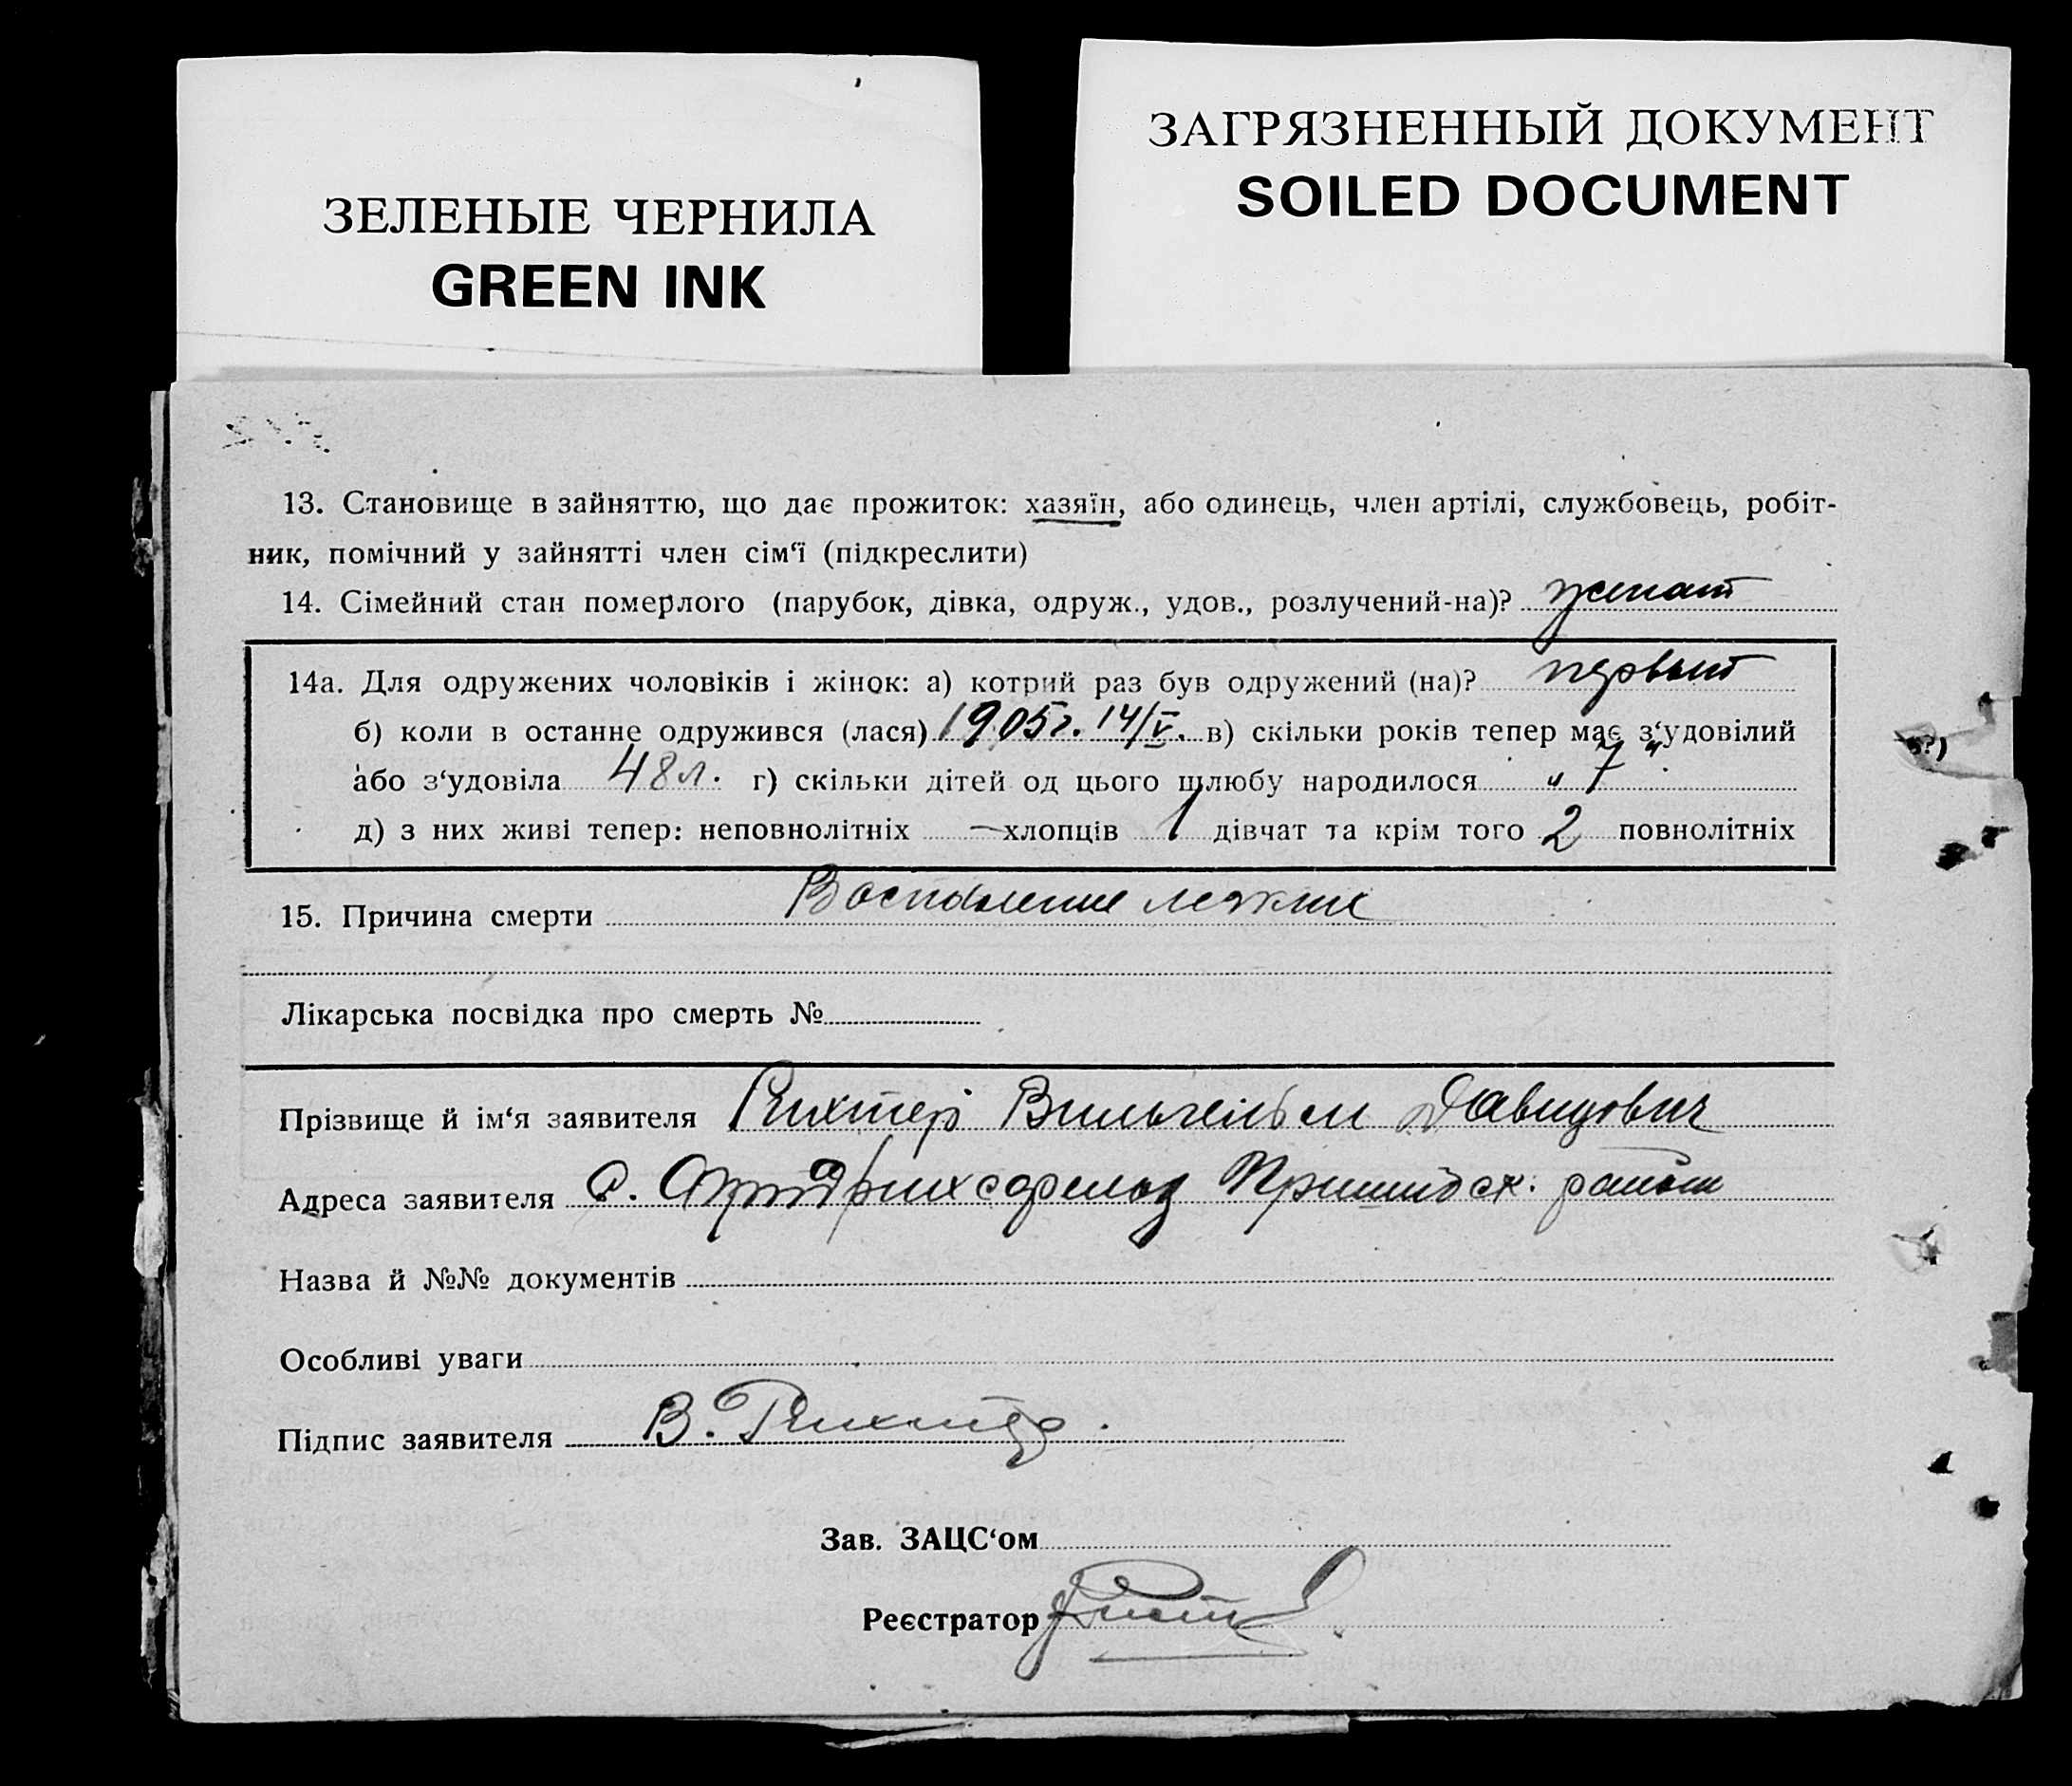 ЗЕЛЕНЫЕ ЧЕРНИЛА
GREEN INK
ЗАГРЯЗНЕННЫЙ ДОКУМЕНТ
SOILED DOCUMENT
13. Становище в зайняттю, що дає прожиток: хазяїн, або одинець, член артілі, службовець, робіт-
ник, помічний у зайнятті член сім‘ї (підкреслити)
14. Сімейний стан померлого (парубок, дівка, одруж., удов., розлучений-на)? женат
14а. Для одружених чоловіків і жінок: а) котрий раз був одружений (на)? первый
б) коли в останне одружився (лася) 1905г. 14/V. в) скільки років тепер має з‘удовілий
або з‘удовіла 48 л. г) скільки дітей од цього шлюбу народилося „7“
д) з них живі тепер: неповнолітніх — хлопців 1 дівчат та крім того 2 повнолітніх
15. Причина смерти Воспаление легких
Лікарська посвідка про смерть №
Прізвище й ім‘я заявителя Рихтер Вильгельм Давидович
Адреса заявителя с. Пришибск. район
Назва й №№ документів
Особливі уваги
Підпис заявителя В. Рихтер.
Зав. ЗАЦС‘ом
Реєстратор